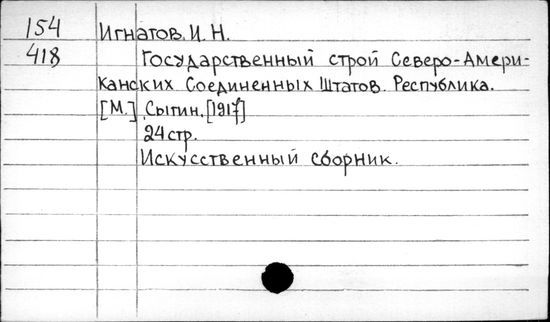 154 Игнатов. И. Н.
418 Государственный строй Северо-Амери-
канских Соединенных Штатов. Республика.
[М.], Сытин, [1917]
24 стр.
Искусственный сборник.